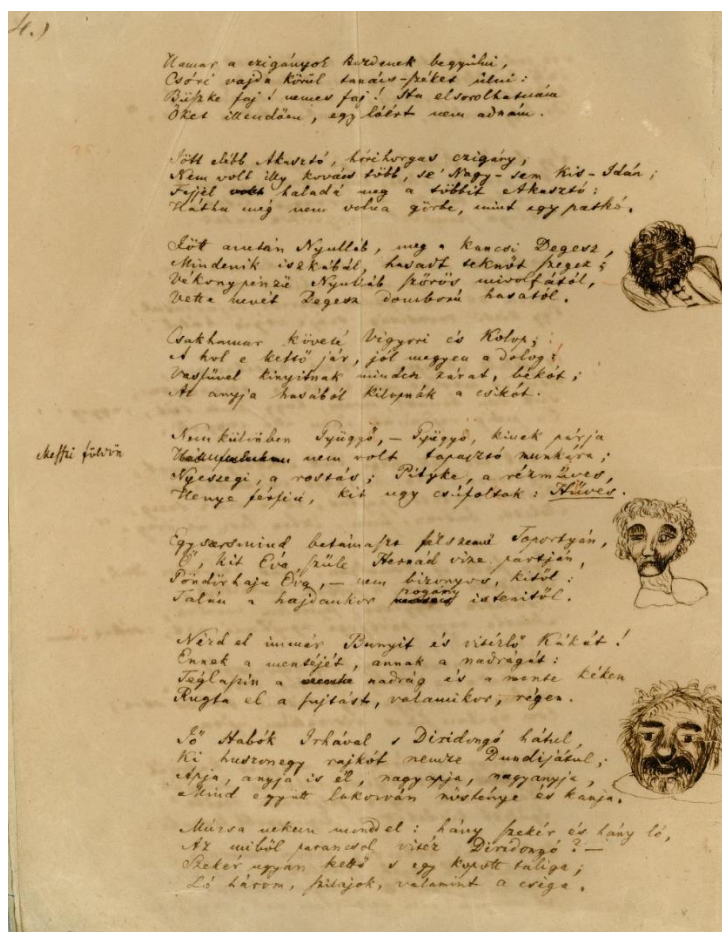 4.)
Hamar a czigányok kezdenek begyülni,
Csóri vajda körül tanács-széket ülni:
Büszke faj! nemes faj! Ha elsorolhatnám
Őket illendően, egy lóért nem adnám.
Jött elébb Akasztó, hórihorgas czigány,
Nem volt illy kovács több, se' Nagy- sem Kis-Idán;
Fejjel haladá meg a többit Akasztó:
Hátha még nem volna görbe, mint egy patkó.
Jött azután Nyúlláb, meg a kancsi Degesz,
Mindenik iszkábál, hasadt teknőt szegez;
Vékonypénzü Nyúlláb szőrös mivoltától,
Vette nevét Degesz domború hasától.
Csakhamar követé Vigyorri és Kolop;
A hol e kettő jár, jól megyen a dolog:
Vasfűvel kinyitnak minden zárat, békót;
Az anyja hasából kilopnák a csikót.
Nem különben Gyügyő, – Gyügyő, kinek párja
Meszszi földön
nem volt tapasztó munkára;
Nyeszegi, a rostás; Pityke, a rézműves,
Henye férfiu, kit ugy csúfoltak: Hűves.
Egyszersmind betámaszt félszemü Toportyán,
Ő, kit Éva szüle Hernád vize partján,
Pöndörhaju Éva, – nem bizonyos, kitől:
Talán a hajdankor pogány isteniről.
Nézd el immár Bunyit és vitézlő Kákát!
Ennek a mentéjét, annak a nadrágát:
Téglaszín a nadrág és a mente kéken
Rugta el a fajtást, valamikor, régen.
Jő Habók Irhával s Diridongó hátul,
Ki huszonegy rajkót nemze Dundijátul;
Apja, anyja is él, nagyapja, nagyanyja,
Mind együtt lakozván nősténye és kanja.
Múzsa nekem monddel: hány szekér és hány ló,
Az miből parancsol vitéz Diridongó? –
Szekér ugyan kettő s egy kopott taliga;
Ló három, szilajok, valamint a csiga.